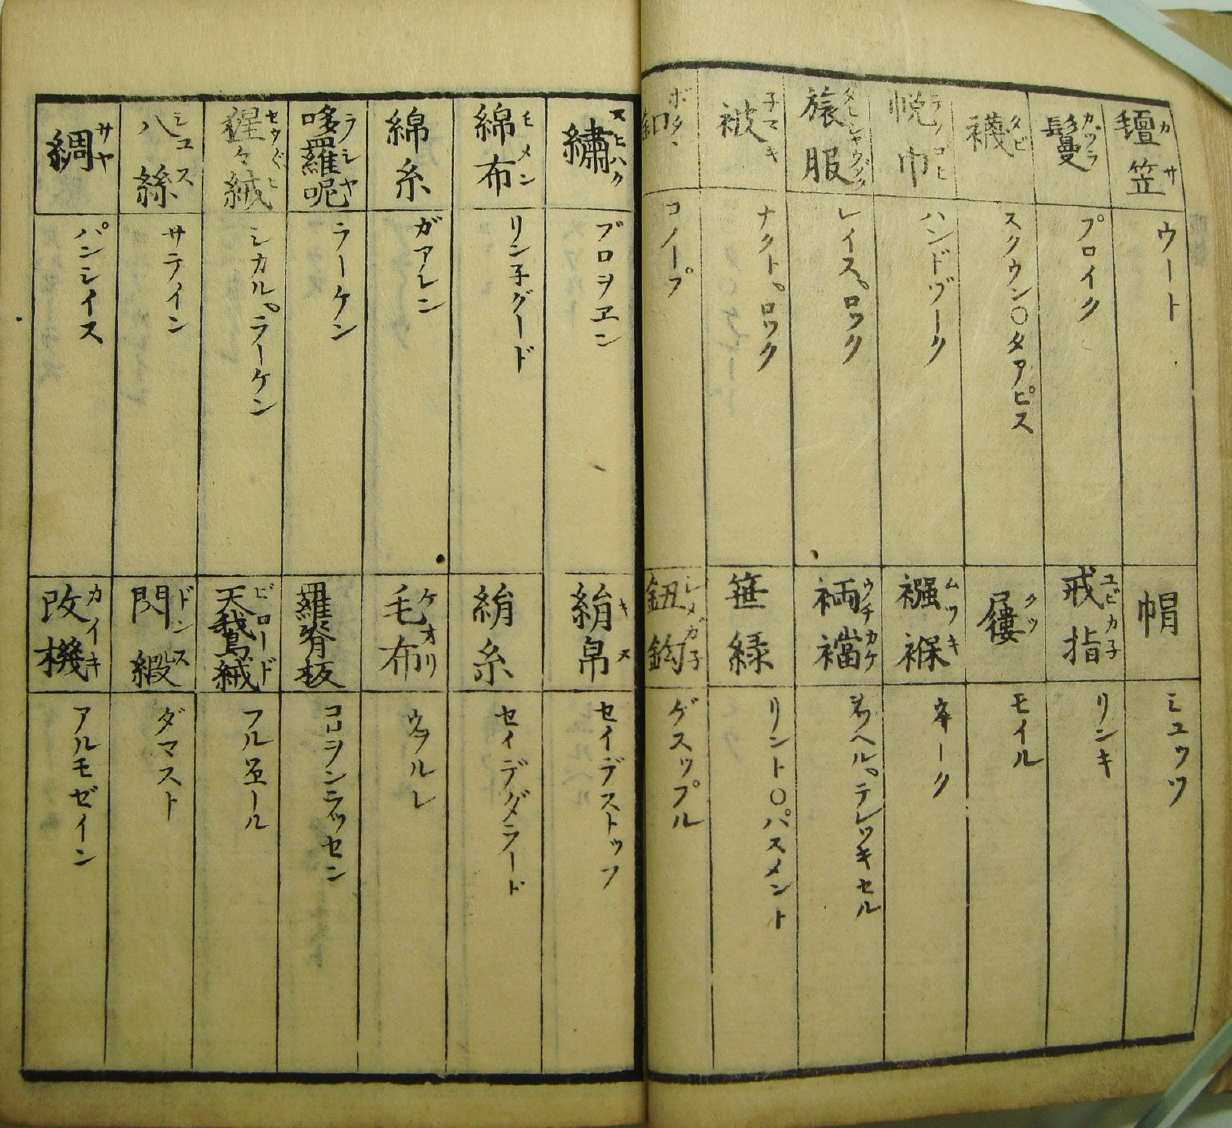 氈笠 カサ ウート
帽 ミュッツ
鬘 カヅラ プロイク
戒指 ユビカ子 リンキ
襪 タビ スクウン〇タアピス
屨 クツ モイル
帨巾 テノコヒ ハンドヅーク
襁褓 ムツキ ヰーク
旅服 レイスロック
裲襠 ウチカケ
被 子マキ ナクトロック
笹緑 リント〇パスメント
釦 ボタン コノープ
鈕鈎 シメガ子 ゲスップル
繡 ヌヒハク ブロヲヱン
絹帛 キヌ セイデストッフ
綿布 モメン リン子グード
絹糸 セイデグラード
綿糸 ガアレン
毛布 ケオリ ウヲルレ
哆羅呢 ラシヤ ラーケン
羅脊板 コロヲンラッセン
猩々絨 シカルラーケン
天鵞絨 ビロード フルヱール
八絲 シュス サテイン
閃緞 ドンス ダマスト
綢 サヤ パンシイス
改機 カイキ アルモゼイン